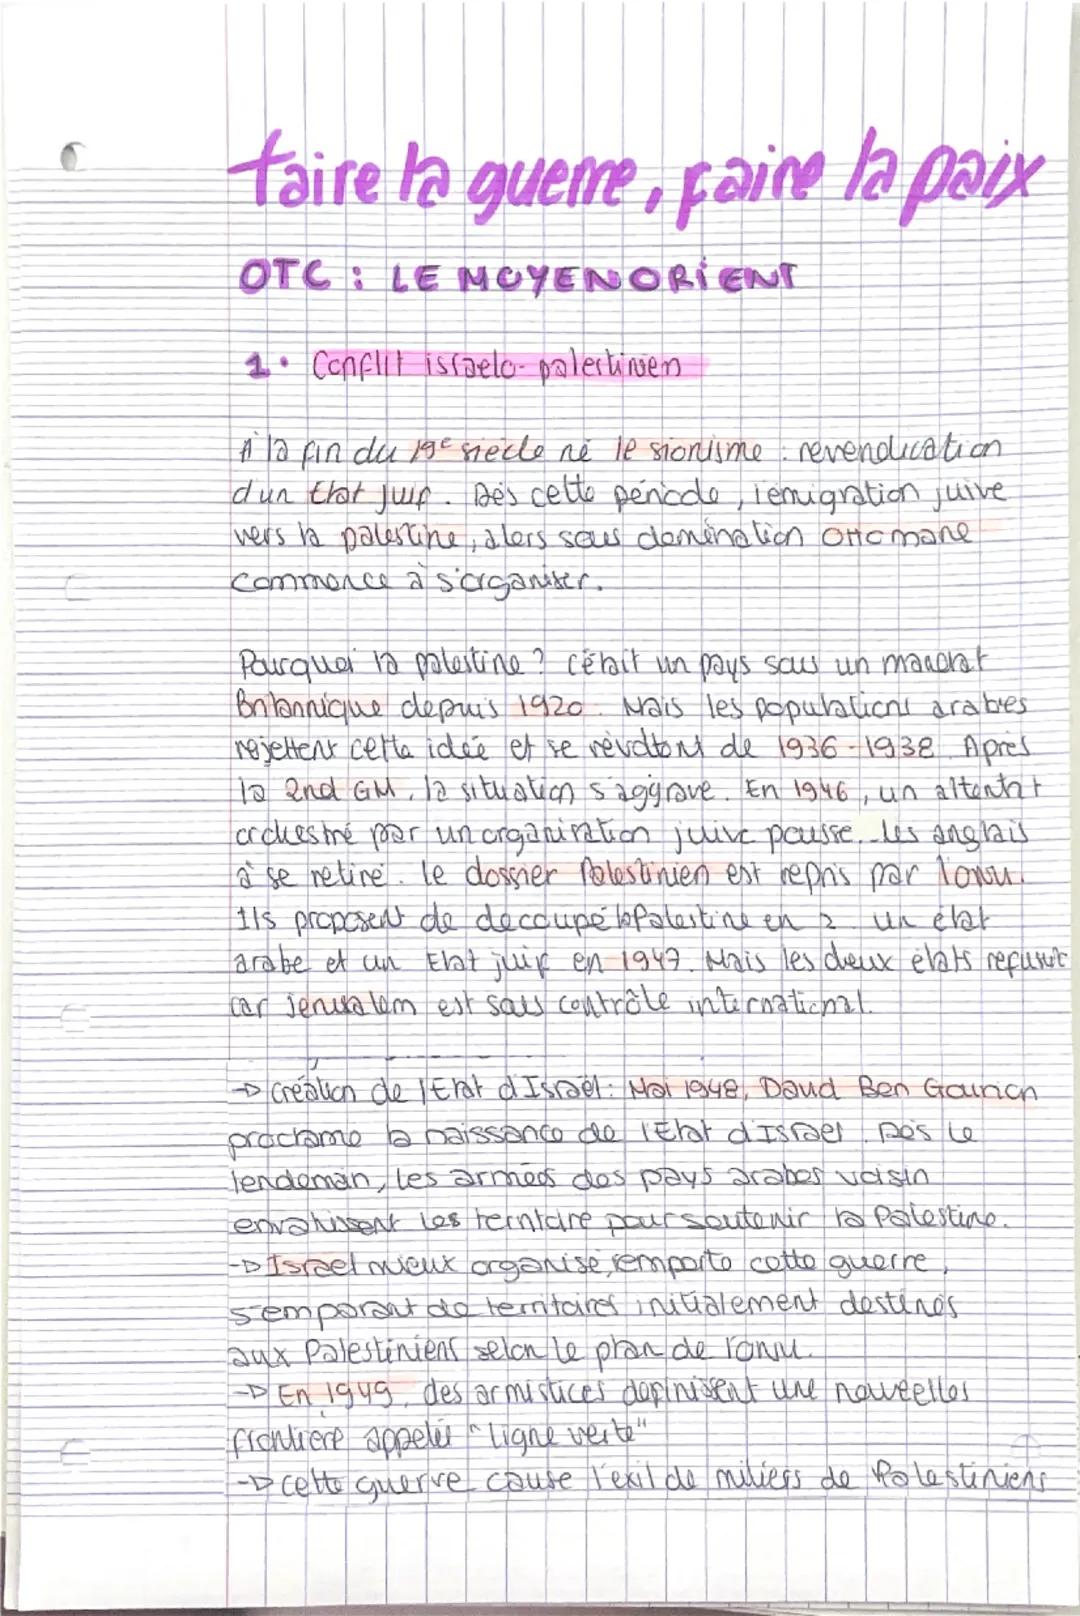 faire la guerre, faire la paix
OTC : LE MOYEN ORIENT
1. Conflit israelo-palestinien
A la fin du 19e siècle né le sionisme : revendication
d'un Etat juif. Dès cette période, l'émigration juive
vers la palestine, alors sous domination Ottomane
commence à s'organiser.
Pourquoi la palestine ? c'était un pays sous un mandat
Britannique depuis 1920. Mais les populations arabes
rejettent cette idée et se révoltent de 1936-1938. Après
la 2nd GM, la situation s'aggrave. En 1946, un attentat
orchestré par un organisation juive pousse les anglais
à se retiré. le dossier Palestinien est repris par l'onu.
Ils proposent de découpé la Palestine en 2 un état
arabe et un Etat juif en 1947. Mais les deux états refusent
car jerusalem est sous contrôle international.
→ création de l'Etat d'Israël : Mai 1948, David Ben Gourion
proclame la naissance de l'Etat d'Israel. Dès le
lendemain, les armées des pays arabes voisin
envahissent les territoire pour soutenir la Palestine.
→ Israel mieux organisé, remporte cette guerre,
s'emparant de territoires initialement destinés
aux Palestiniens selon le plan de l'onu.
→ En 1949, des armistices définissent une nouvelles
frontière appelé "ligne verte"
→ cette guerre cause l'exil de milliers de Palestiniens